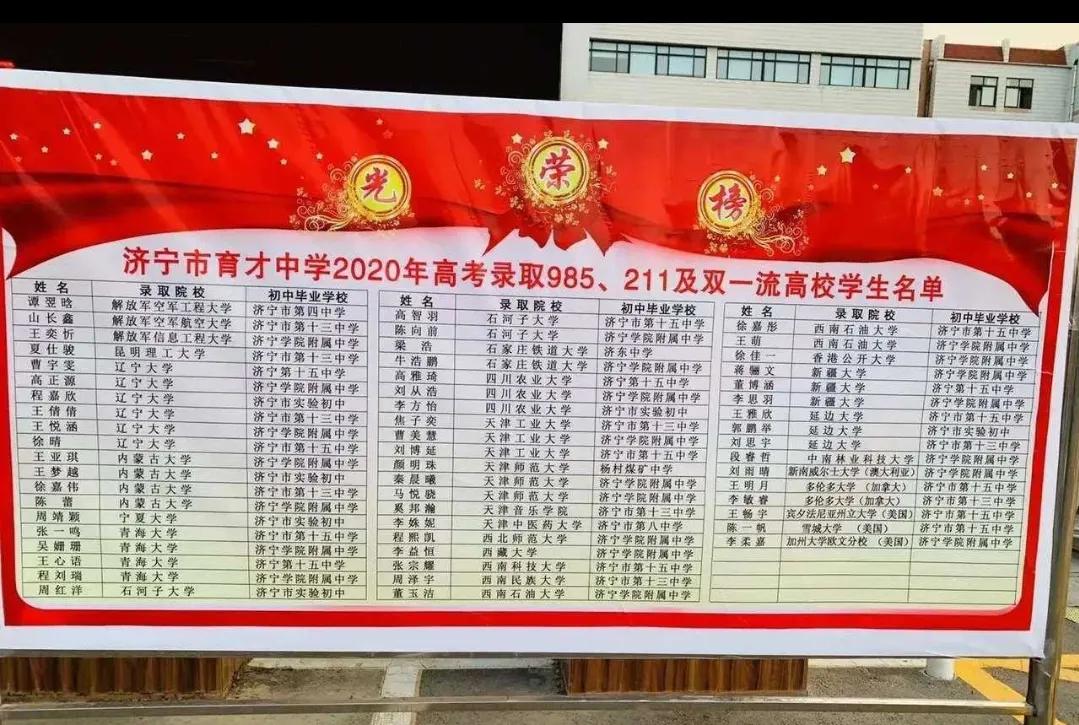 光荣榜
济宁市育才中学2020年高考录取985、211及双一流高校学生名单
姓名 录取院校 初中毕业学校
谭翌晗 解放军空军工程大学 济宁市第四中学
山长鑫 解放军空军航空大学 济宁市第十三中学
王奕忻 解放军信息工程大学 济宁学院附属中学
夏仕骏 昆明理工大学 济宁市第十三中学
曹宇雯 辽宁大学 济宁第十五中学
高正源 辽宁大学 济宁学院附属中学
程嘉欣 辽宁大学 济宁市实验初中
王倩倩 辽宁大学 济宁市第十三中学
王悦涵 辽宁大学 济宁学院附属中学
徐晴 辽宁大学 济宁市第十五中学
王亚琪 内蒙古大学 济宁学院附属中学
王梦越 内蒙古大学 济宁市实验初中
徐嘉伟 内蒙古大学 济宁市第十三中学
陈蕾 内蒙古大学 济宁学院附属中学
周靖颖 宁夏大学 济宁市实验初中
张一鸣 青海大学 济宁市第十五中学
吴姗珊 青海大学 济宁学院附属中学
王心语 青海大学 济宁第十五中学
程刘瑞 青海大学 济宁学院附属中学
周红洋 石河子大学 济宁市实验初中
姓名 录取院校 初中毕业学校
高智羽 石河子大学 济宁市第十五中学
陈向前 石河子大学 济宁学院附属中学
梁浩 石家庄铁道大学 济东中学
牛浩鹏 石家庄铁道大学 济宁学院附属中学
高雅琦 四川农业大学 济宁第十五中学
刘从浩 四川农业大学 济宁学院附属中学
李方怡 四川农业大学 济宁市实验初中
焦子奕 天津工业大学 济宁市第十三中学
曹美慧 天津工业大学 济宁学院附属中学
刘博延 天津工业大学 济宁市第十五中学
颜明珠 天津师范大学 杨村煤矿中学
秦晨曦 天津师范大学 济宁学院附属中学
马悦骁 天津师范大学 济宁学院附属中学
奚邦瀚 天津音乐学院 济宁市第十三中学
李姝妮 天津中医药大学 济宁市第八中学
程熙凯 西北师范大学 济宁学院附属中学
李益恒 西藏大学 济宁学院附属中学
张宗耀 西南科技大学 济宁市第十五中学
周泽宇 西南民族大学 济宁市第十三中学
董玉洁 西南石油大学 济宁学院附属中学
姓名 录取院校 初中毕业学校
徐嘉彤 西南石油大学 济宁市第十五中学
王萌 西南石油大学 济宁学院附属中学
徐佳一 香港公开大学 济宁学院附属中学
蒋骊文 新疆大学 济宁学院附属中学
董博涵 新疆大学 济宁第十五中学
李思羽 新疆大学 济宁学院附属中学
王雅欣 延边大学 济宁市第十五中学
郭鹏举 延边大学 济宁市实验初中
刘思宇 延边大学 济宁市第十三中学
段睿哲 中南林业科技大学 济宁学院附属中学
刘雨晴 新南威尔士大学（澳大利亚） 济宁学院附属中学
王明月 多伦多大学（加拿大） 济宁市第十五中学
李敏睿 多伦多大学（加拿大） 济宁市第十三中学
王畅宇 宾夕法尼亚州立大学（美国） 济宁学院附属中学
陈一帆 雪城大学（美国） 济宁市第十五中学
李柔嘉 加州大学欧文分校（美国） 济宁学院附属中学